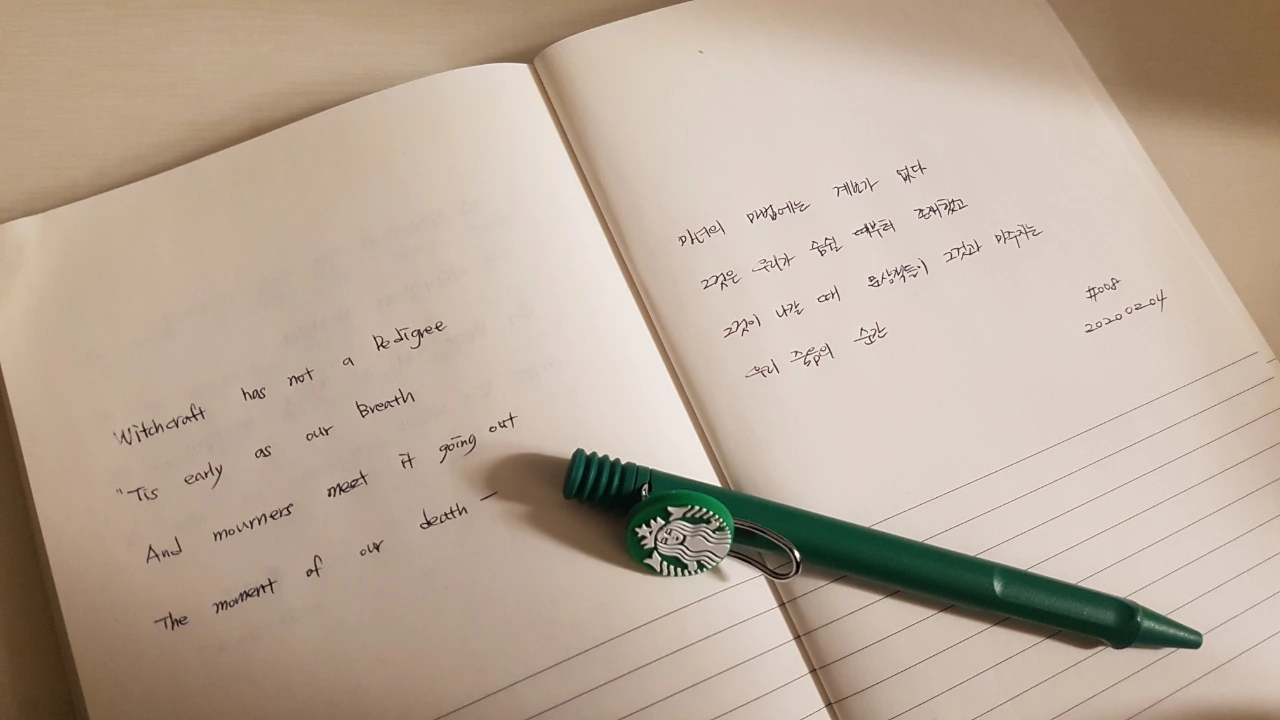 Witchcraft has not a Pedigree
"Tis early as our Breath
And mourners meet it going out
The moment of our death —
마녀의 마법에는 계보가 없다
그것은 우리가 숨쉴 때부터 존재했고
그것이 나갈 때 문상객들이 그것과 마주치는
우리 죽음의 순간
#008
20200204